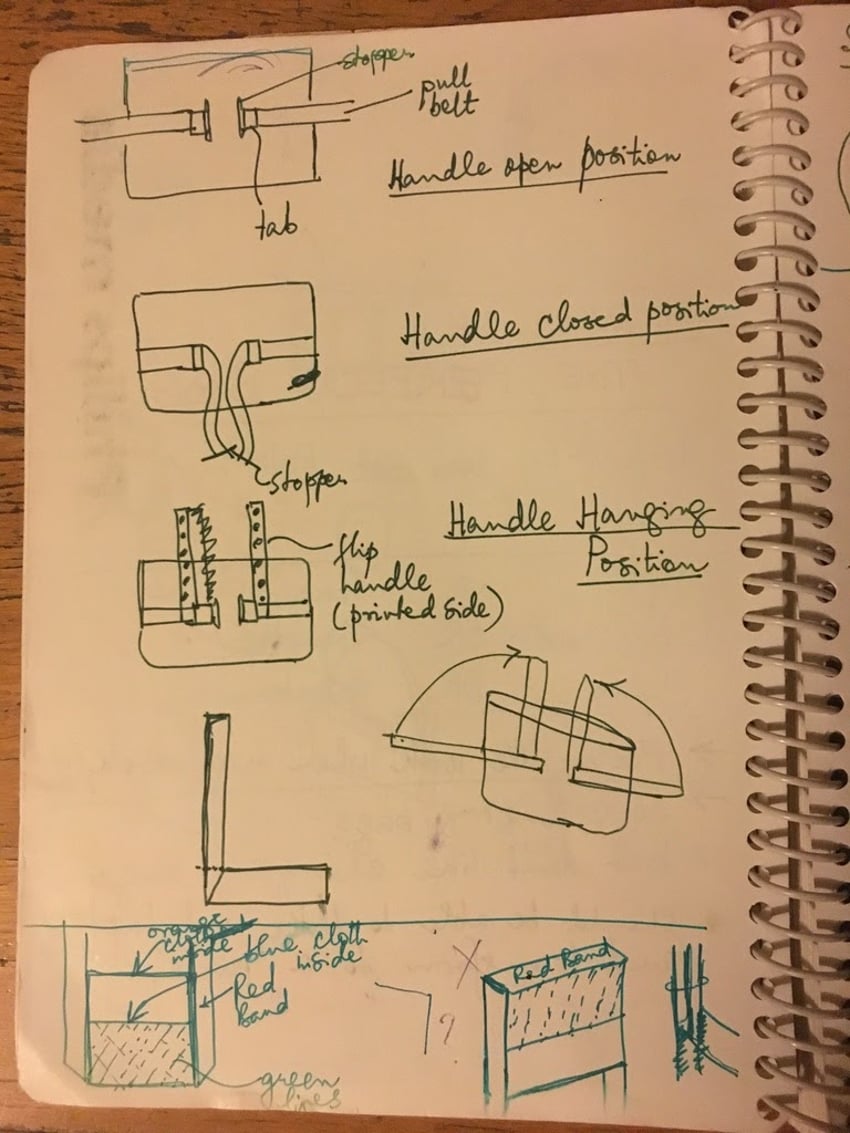 stopper
pull
belt
Handle open position
tab
Handle closed position
stopper
Handle Hanging
Position
flip
handle
(printed side)
orange
inside
blue cloth
inside
Red
Band
green
lines
Red Band
?